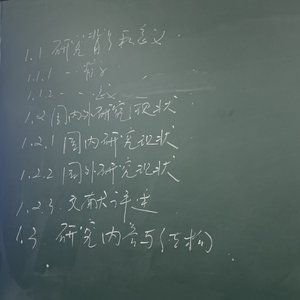 1.1 研究背景和意义
1.1.1 -- 背景
1.1.2 -- 意义
1.2 国内外研究现状
1.2.1 国内研究现状
1.2.2 国外研究现状
1.2.3 文献评述
1.3 研究内容与(结构)